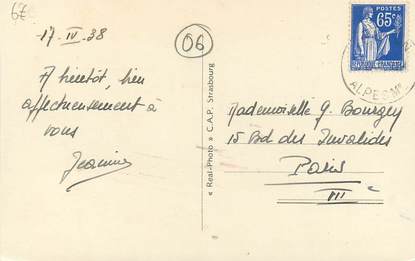 67
17-IV-38
06
A bientôt, bien
affectueusement à
vous
Jeannine
« Real-Photo » C.A.P. Strasbourg
POSTES
65c
ALPES Mmes
Mademoiselle G. Bourgey
15 Bd des Invalides
Paris
VII